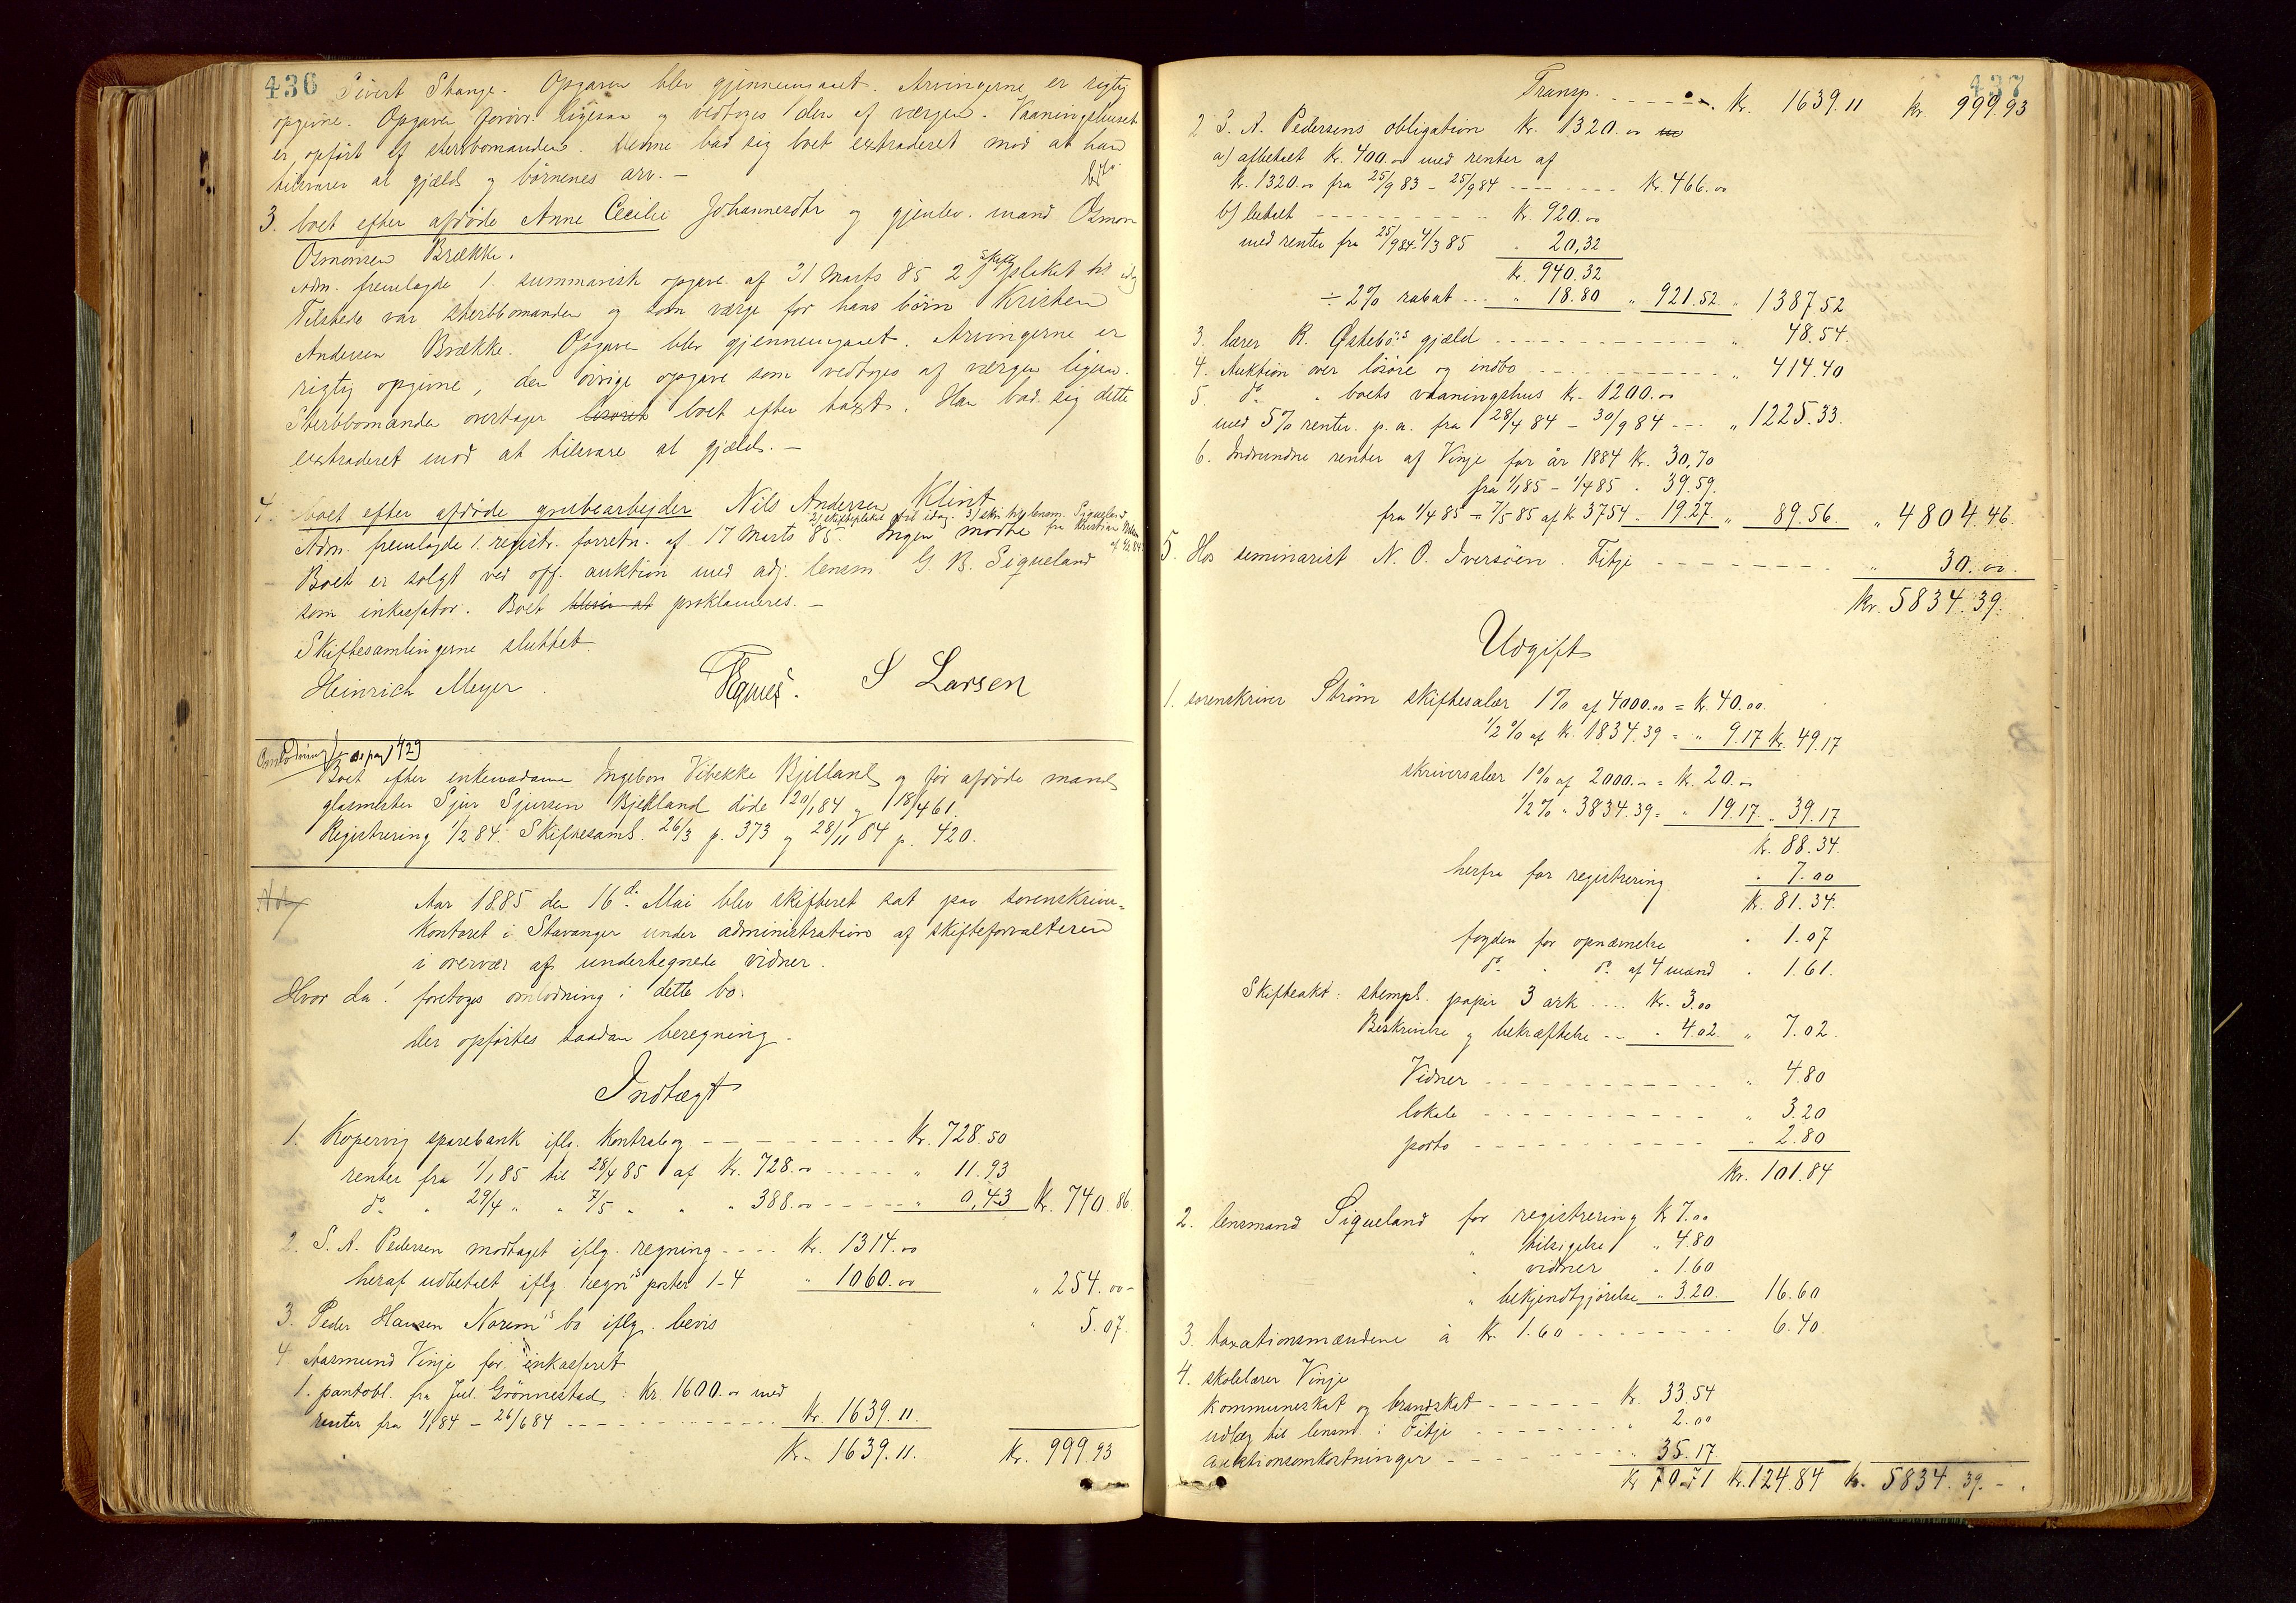 436
Sivert Stange. Opgaven blev gjennemgaaet. Arvingerne er rigtig
opgivne. Opgaven forøvr. ligesaa og vedtoges den af værgen. Vaaningshuset
er opført af sterbbomanden. Denne bad sig boet extraderet mod at han
tilsvarer al gjæld og børnenes arv. —
3. boet efter afdøde Anne Cecilie Johannesdtr og gjenlev. mand Osmon
Osmonsen Brække.
Adm. fremlagde 1. summarisk opgave af 31 Marts 85 2) skifteplakat til idag
Tilstede var sterbbomanden og som værge for hans børn Kristen
Andersen Brække. Opgaven blev gjennemgaaet. Arvingerne er
rigtig opgivne, den øvrige opgave som vedtoges af værgen ligesaa.
Sterbbomanden overtager løsøret boet efter taxt. Han bad sig dette
extraderet mod at tilsvare al gjæld. —
4. boet efter afdøde grubearbejder Nils Andersen Klint
2) skifteplakat til idag. 3) skr. fra lensm. Siqueland
Adm. fremlagde 1. registr. forretn. af 17 Marts 85. Ingen mødte
Boet er solgt ved off. auktion med adj. lensm. G. B. Siqueland
som inkassator. Boet bliver at proklameres. —
Skiftesamlingerne sluttet.
Heinrich Meyer S Larsen
Omlodning se pag 429
Boet efter enkemadame Ingebor Vibekke Kjilland og før afdøde mand
glasmester Sjur Sjursen Kjelland døde 20/1 84 og 18/4 61.
Registrering 1/2 84. Skiftesaml. 26/3 p. 373 og 28/11 84 p. 420.
Aar 1885 den 16de Mai blev skifteret sat paa sorenskriver-
kontoret i Stavanger under administration af skifteforvalteren
i overvær af undertegnede vidner.
Hvor da! foretoges omlodning i dette bo.
der opførtes saadan beregning.
Indtægt
1. Kopervig sparebank iflg. kontrabog - - - Kr. 728.50
renter fra 1/1 85 til 28/4 85 af Kr. 728.00 - - - " 11.93
do " 29/4 " " 7/5 " " " 388.00 - - - " 0,43 Kr. 740.86
2. S. A. Pedersen modtaget iflg. regning - - - Kr. 1314.00
heraf udbetalt iflg. regns poster 1-4 " 1060.00 " 254.00 -
3. Peder Hansen Norems bo iflg. bevis " 5.07.
4 Aasmund Vinje for inkasseret
1. pantobl. fra Jul. Grønnestad: Kr. 1600.00 med
renter fra 1/1 84 - 26/6 84 - - - Kr. 1639.11.
Kr. 1639.11. Kr. 999.93
437
Transp. - - - Kr. 1639.11 Kr. 999.93
2 S. A. Pedersens obligation Kr. 1320.00
a) afbetalt Kr. 400.00 med renter af
Kr. 1320.00 fra 25/9 83 - 25/9 84 - - - Kr. 466.00
b) betalt - - - Kr. 920.00
med renter fra 25/9 84 4/3 85 " 20,32
Kr. 940.32
÷ 2% rabat - - " 18.80 " 921.52 " 1387.52
3. lærer R. Østebø's gjæld - - - " 48.54.
4. Auktion over løsøre og indbo - - - " 414.40
5. do " boets vaaningshus Kr. 1200.00
med 5% renter p. a. fra 28/4 84 - 30/9 84 - - - " 1225.33.
6. Indvundne renter af Vinje for år 1884 Kr. 30,70
fra 1/1 85 - 1/4 85 " 39.59.
fra 1/4 85 - 7/5 85 af Kr 3754 " 19.27 " 89.56. " 4804.46.
5. Hos seminarist N. O. Iversøen. Fitje - - - " 30.00.
Kr. 5834.39.
Udgift
1. sorenskriver Strøm skiftesalær 1% af 4000.00 = Kr. 40.00.
1/2% af Kr. 1834.39 = " 9.17 Kr. 49.17
skriversalær 1% af 2000.- = Kr. 20.-
1/2% " 3834.39 = " 19.17. " 39.17
Kr. 88.34.
herfra for registrering " 7.00
Kr. 81.34.
fogden for opnævnelse " 1.07
do " do af 4 mænd " 1.61.
Skifteakt: stempl. papir 3 ark .... Kr. 3.00
Beskrivelse og bekræftelse - - " 4.02. " 7.02.
Vidner - - - " 4.80
lokale - - - " 3.20
porto - - - " 2.80
Kr. 101.84
2. lensmand Siqueland for registrering Kr 7.00
" tilsigelse " 4.80
" vidner " 1.60
" bekjendtgjørelse " 3.20. 16.60
3. taxationsmændene à Kr. 1.60 - - - 6.40
4. skolelærer Vinje
kommuneskat og brandskat - - - Kr. 33.54
udlæg til lensm. i Fitje - - - " 2.00
auktionsomkostninger - - - " 35.17.
Kr 70.71 Kr. 124.84 Kr. 5834.39. -